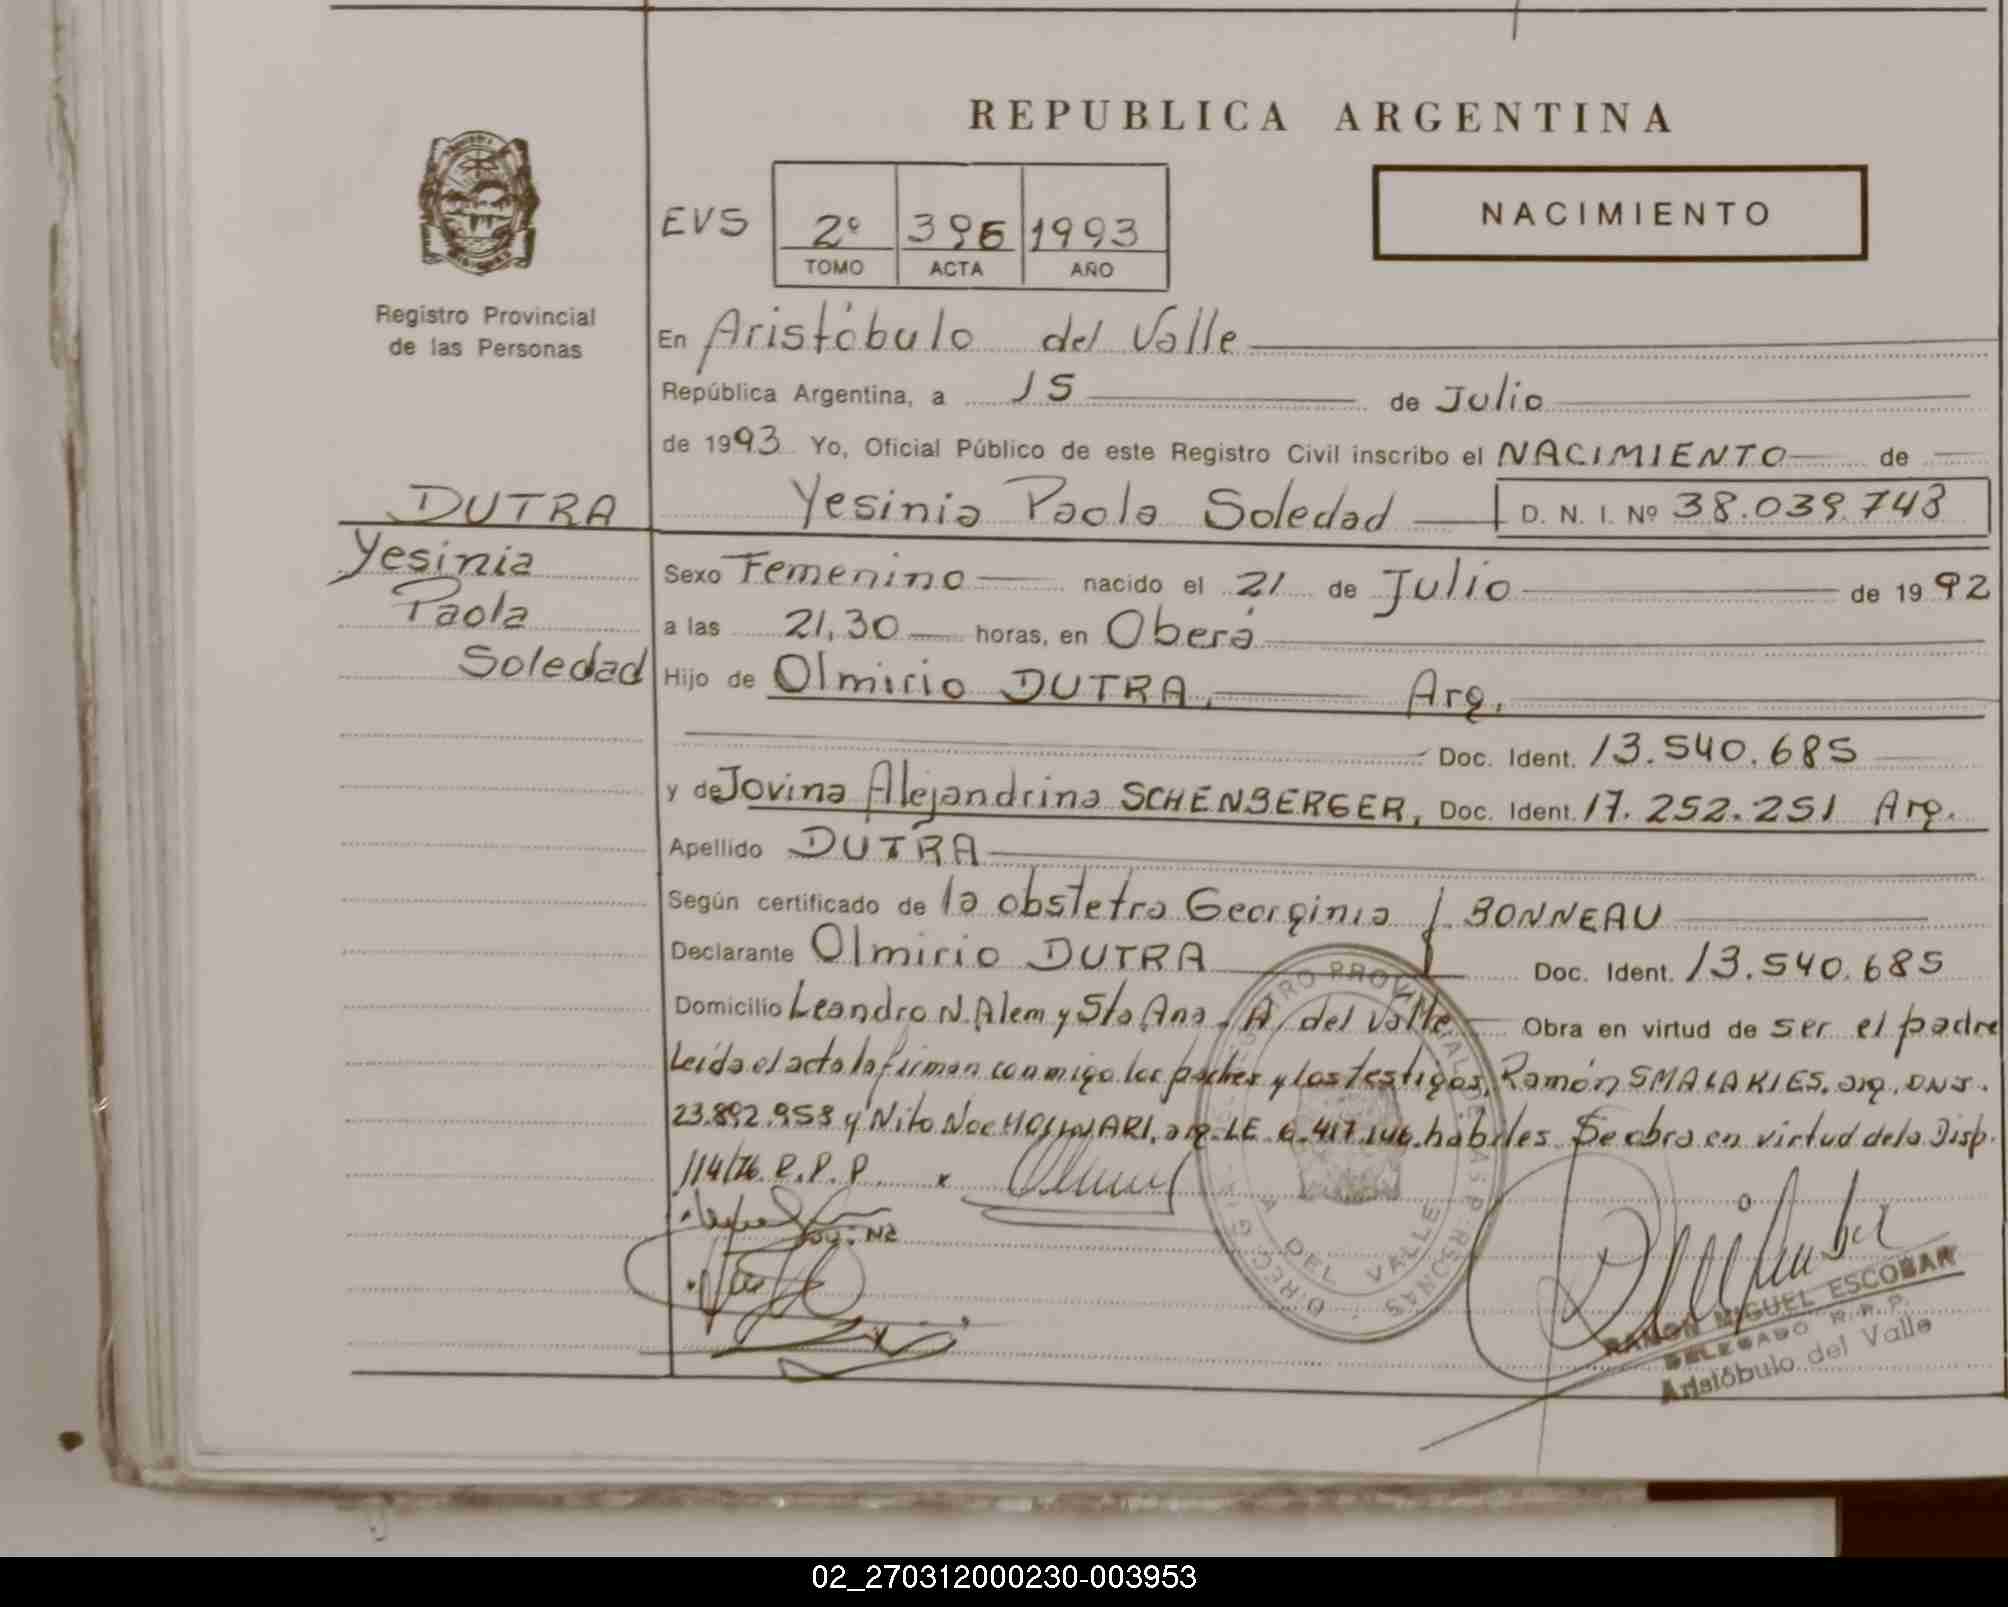 REPUBLICA ARGENTINA
NACIMIENTO
EVS 2º 396 1993
TOMO ACTA AÑO
Registro Provincial
de las Personas
En Aristóbulo del Valle
República Argentina, a 15 de Julio
de 1993 Yo, Oficial Público de este Registro Civil inscribo el NACIMIENTO de
DUTRA
Yesinia Paola Soledad D. N. I. Nº 38.039.743
Yesinia
Paola
Soledad
Sexo Femenino nacido el 21 de Julio de 1992
a las 21,30 horas, en Oberá
Hijo de Olmirio DUTRA, Arg,
Doc. Ident. 13.540.685
y de Jovina Alejandrina SCHENBERGER, Doc. Ident. 17.252.251 Arg.
Apellido DUTRA
Según certificado de la obstetra Georginia J. BONNEAU
Declarante Olmirio DUTRA Doc. Ident. 13.540.685
Domicilio Leandro N. Alem y Sta Ana. A. del Valle Obra en virtud de ser el padre
Leída el acta la firman conmigo los padres y los testigos, Ramón SMALAKIES, arg. DNI.
23.892.958 y Nito Noe arg. LE 6.417.146. habiles. Se obra en virtud de la Disp.
114/76. R.P.P.
DIRECC. G. REGISTRO PROVINCIAL DE LAS PERSONAS
A DEL VALLE
RAMON MIGUEL ESCOBAR
DELEGADO R.P.P.
Aristóbulo del Valle
02_270312000230-003953